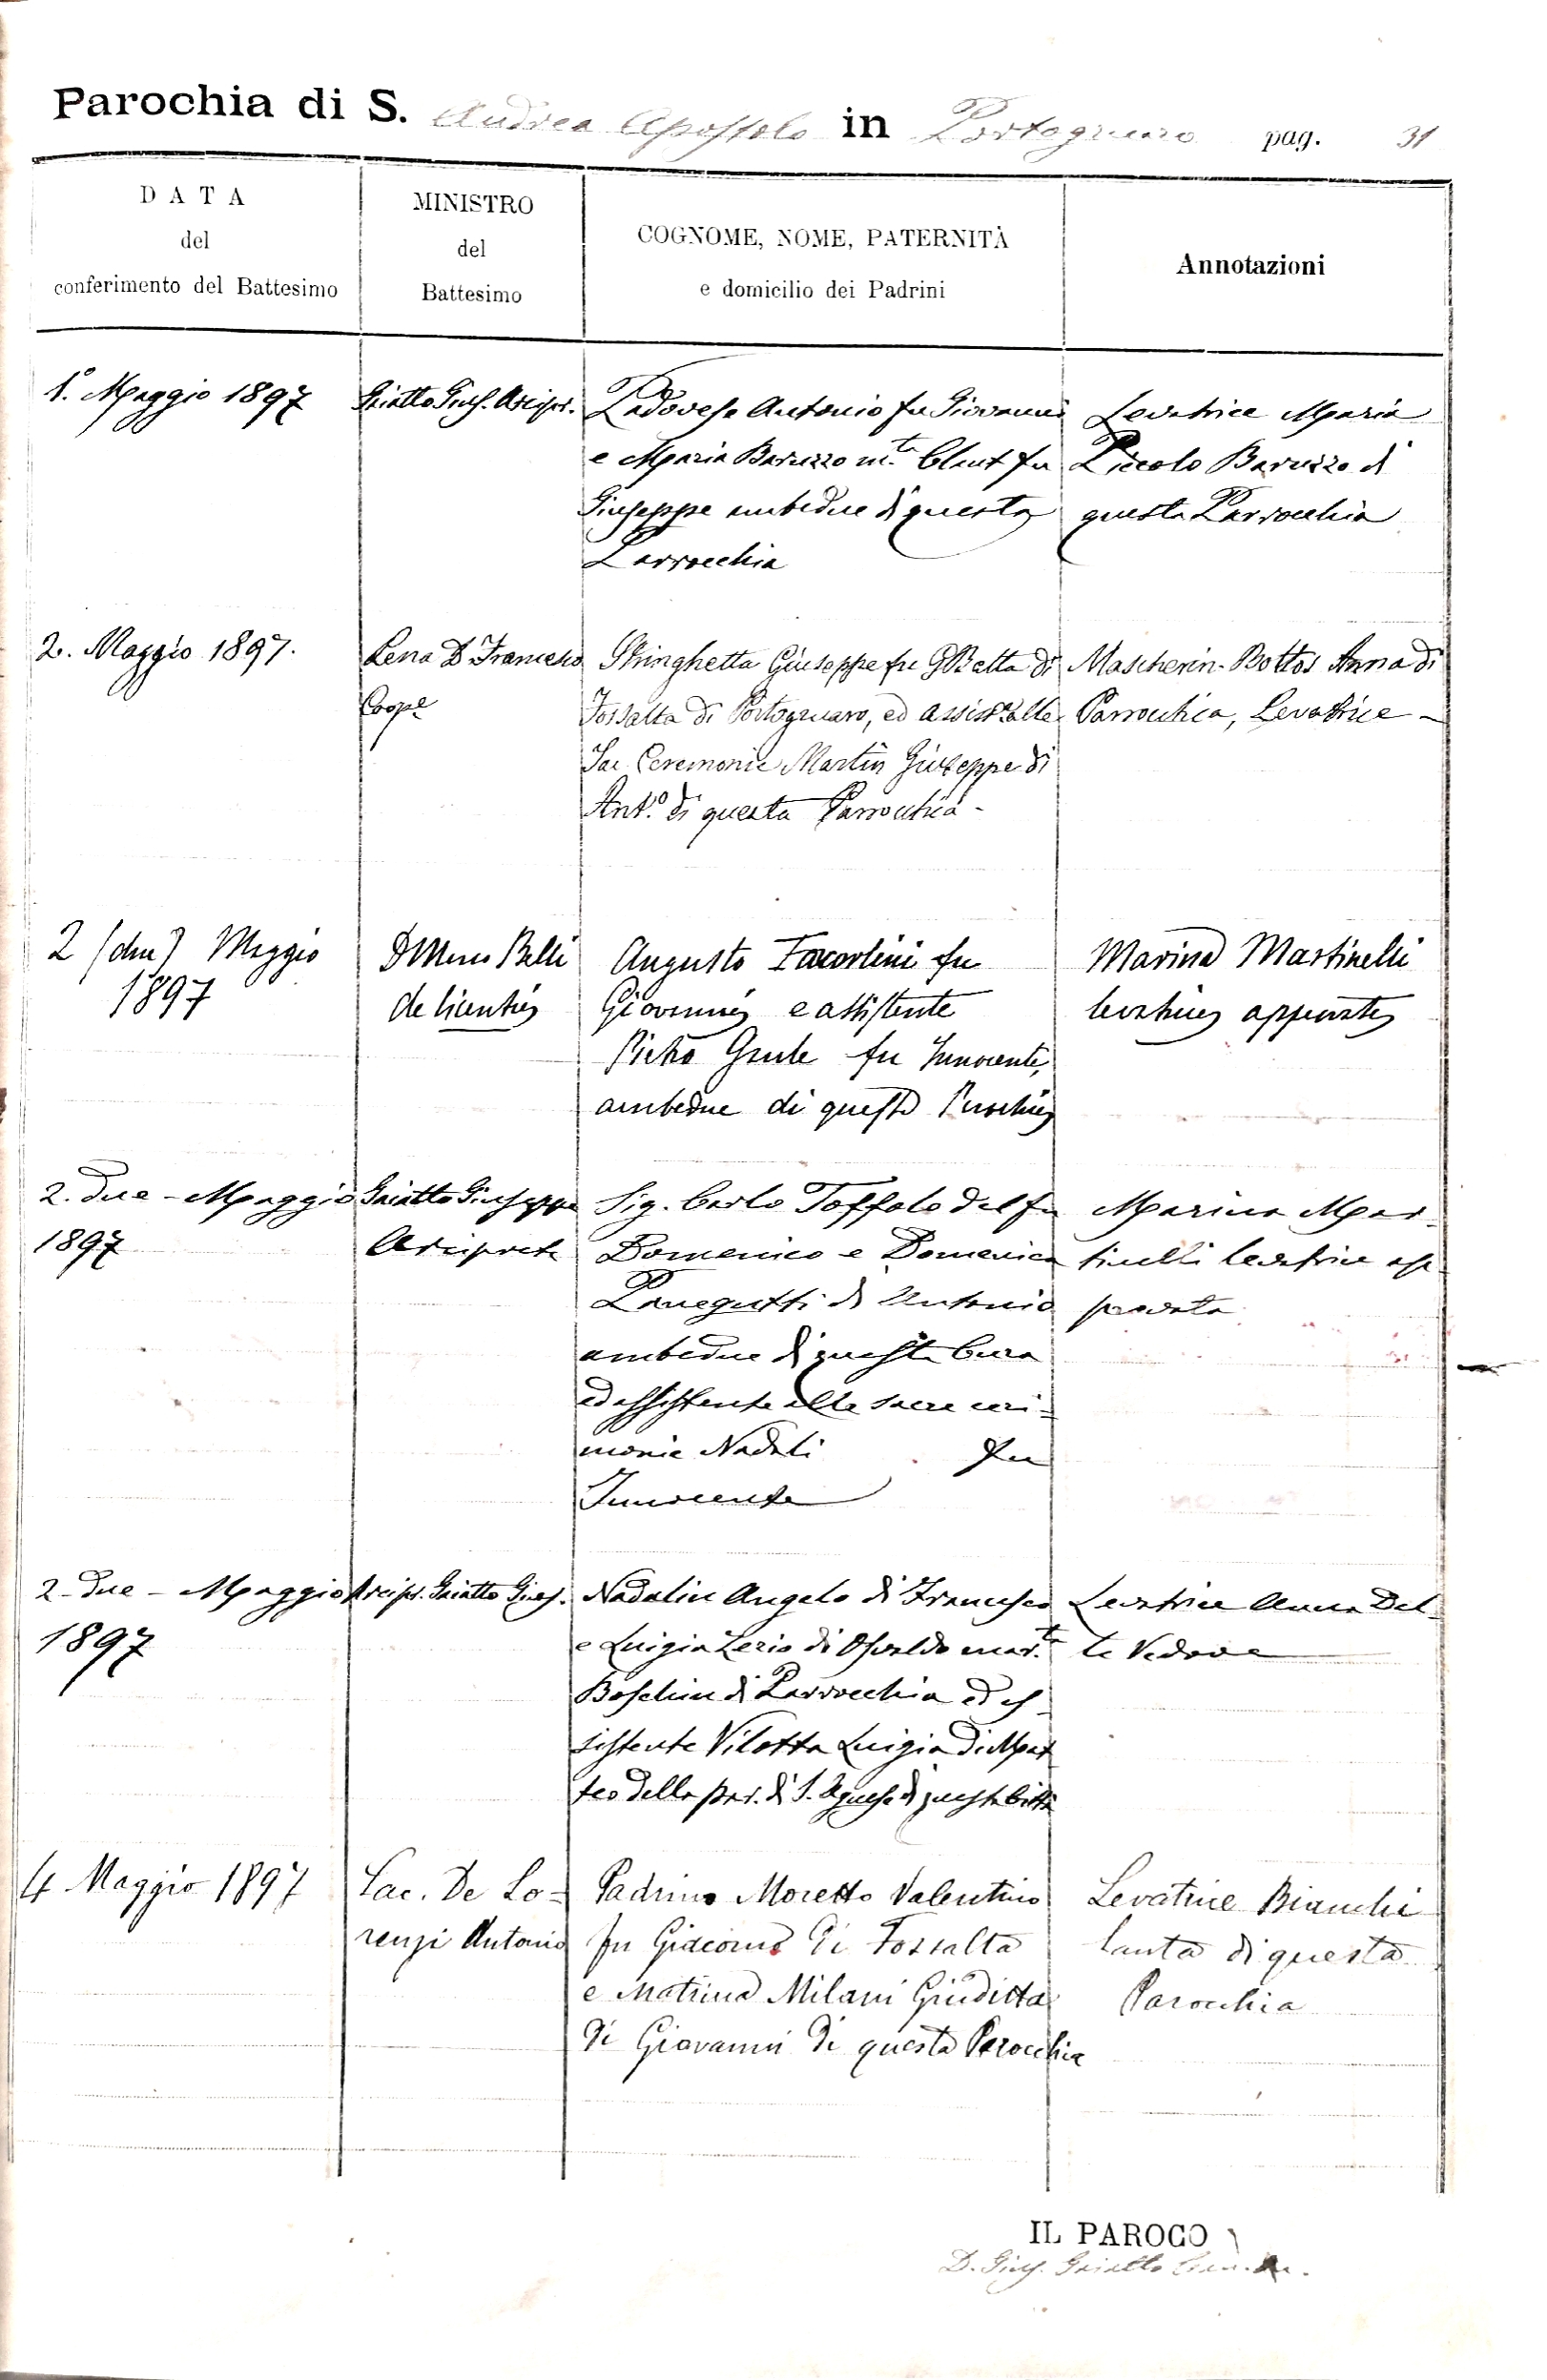 Parochia di S. Andrea Apostolo in Portogruaro pag. 31
DATA
del
conferimento del Battesimo
MINISTRO
del
Battesimo
COGNOME, NOME, PATERNITÀ
e domicilio dei Padrini
Annotazioni
1.° Maggio 1897
Gaiatto Gius. Arcipr.
Padovese Antonio fu Giovanni
e Maria Baruzzo m.ta fu
Giuseppe ambedue di questa
Parrocchia
Levatrice Maria
Piccolo Baruzzo di
questa Parrocchia
2. Maggio 1897.
Lena D. Francesco
Coop.
Stringhetta Giuseppe fu G Batta di
Fossalta di Portogruaro, ed assist. alle
Sac. Ceremonie Martin Giuseppe di
Ant.° di questa Parrocchia -
Mascherin-Bottos Anna di
Parrocchia, Levatrice -
2 (due) Maggio
1897
D Belli
de licentia
Augusto Facortini fu
Giovanni e assistente
Pietro fu Innocente,
ambedue di questa Parochia
Marina Martinelli
levatrice approvata
2. due - Maggio
1897
Gaiatto Giuseppe
Arciprete
Sig. Carlo Toffolo del fu
Domenico e Domenica
Panegutti di Antonio
ambedue di questa Cura
ed assistente alle sacre ceri-
monie Nadali fu
Innocente
Marina Mar-
tinelli levatrice ap-
provata
2 - due - Maggio
1897
Arcipr. Gaiatto Gius.
Nadalin Angelo di Francesco
e Luigia Lerio di Osvaldo mar.ta
Boschin di Parrocchia ed as-
sistente Vilotta Luigia di Mat
teo della par. di S. Agnese di questa Città
Levatrice Anna Del-
le Vedove
4 Maggio 1897
Sac. De Lo-
renzi Antonio
Padrino Moretto Valentino
fu Giacomo di Fossalta
e Matrina Milani Giuditta
di Giovanni di questa Parocchia
Levatrice Bianchi
Santa di questa
Parocchia
IL PAROCO
D. Gius. Gaiatto